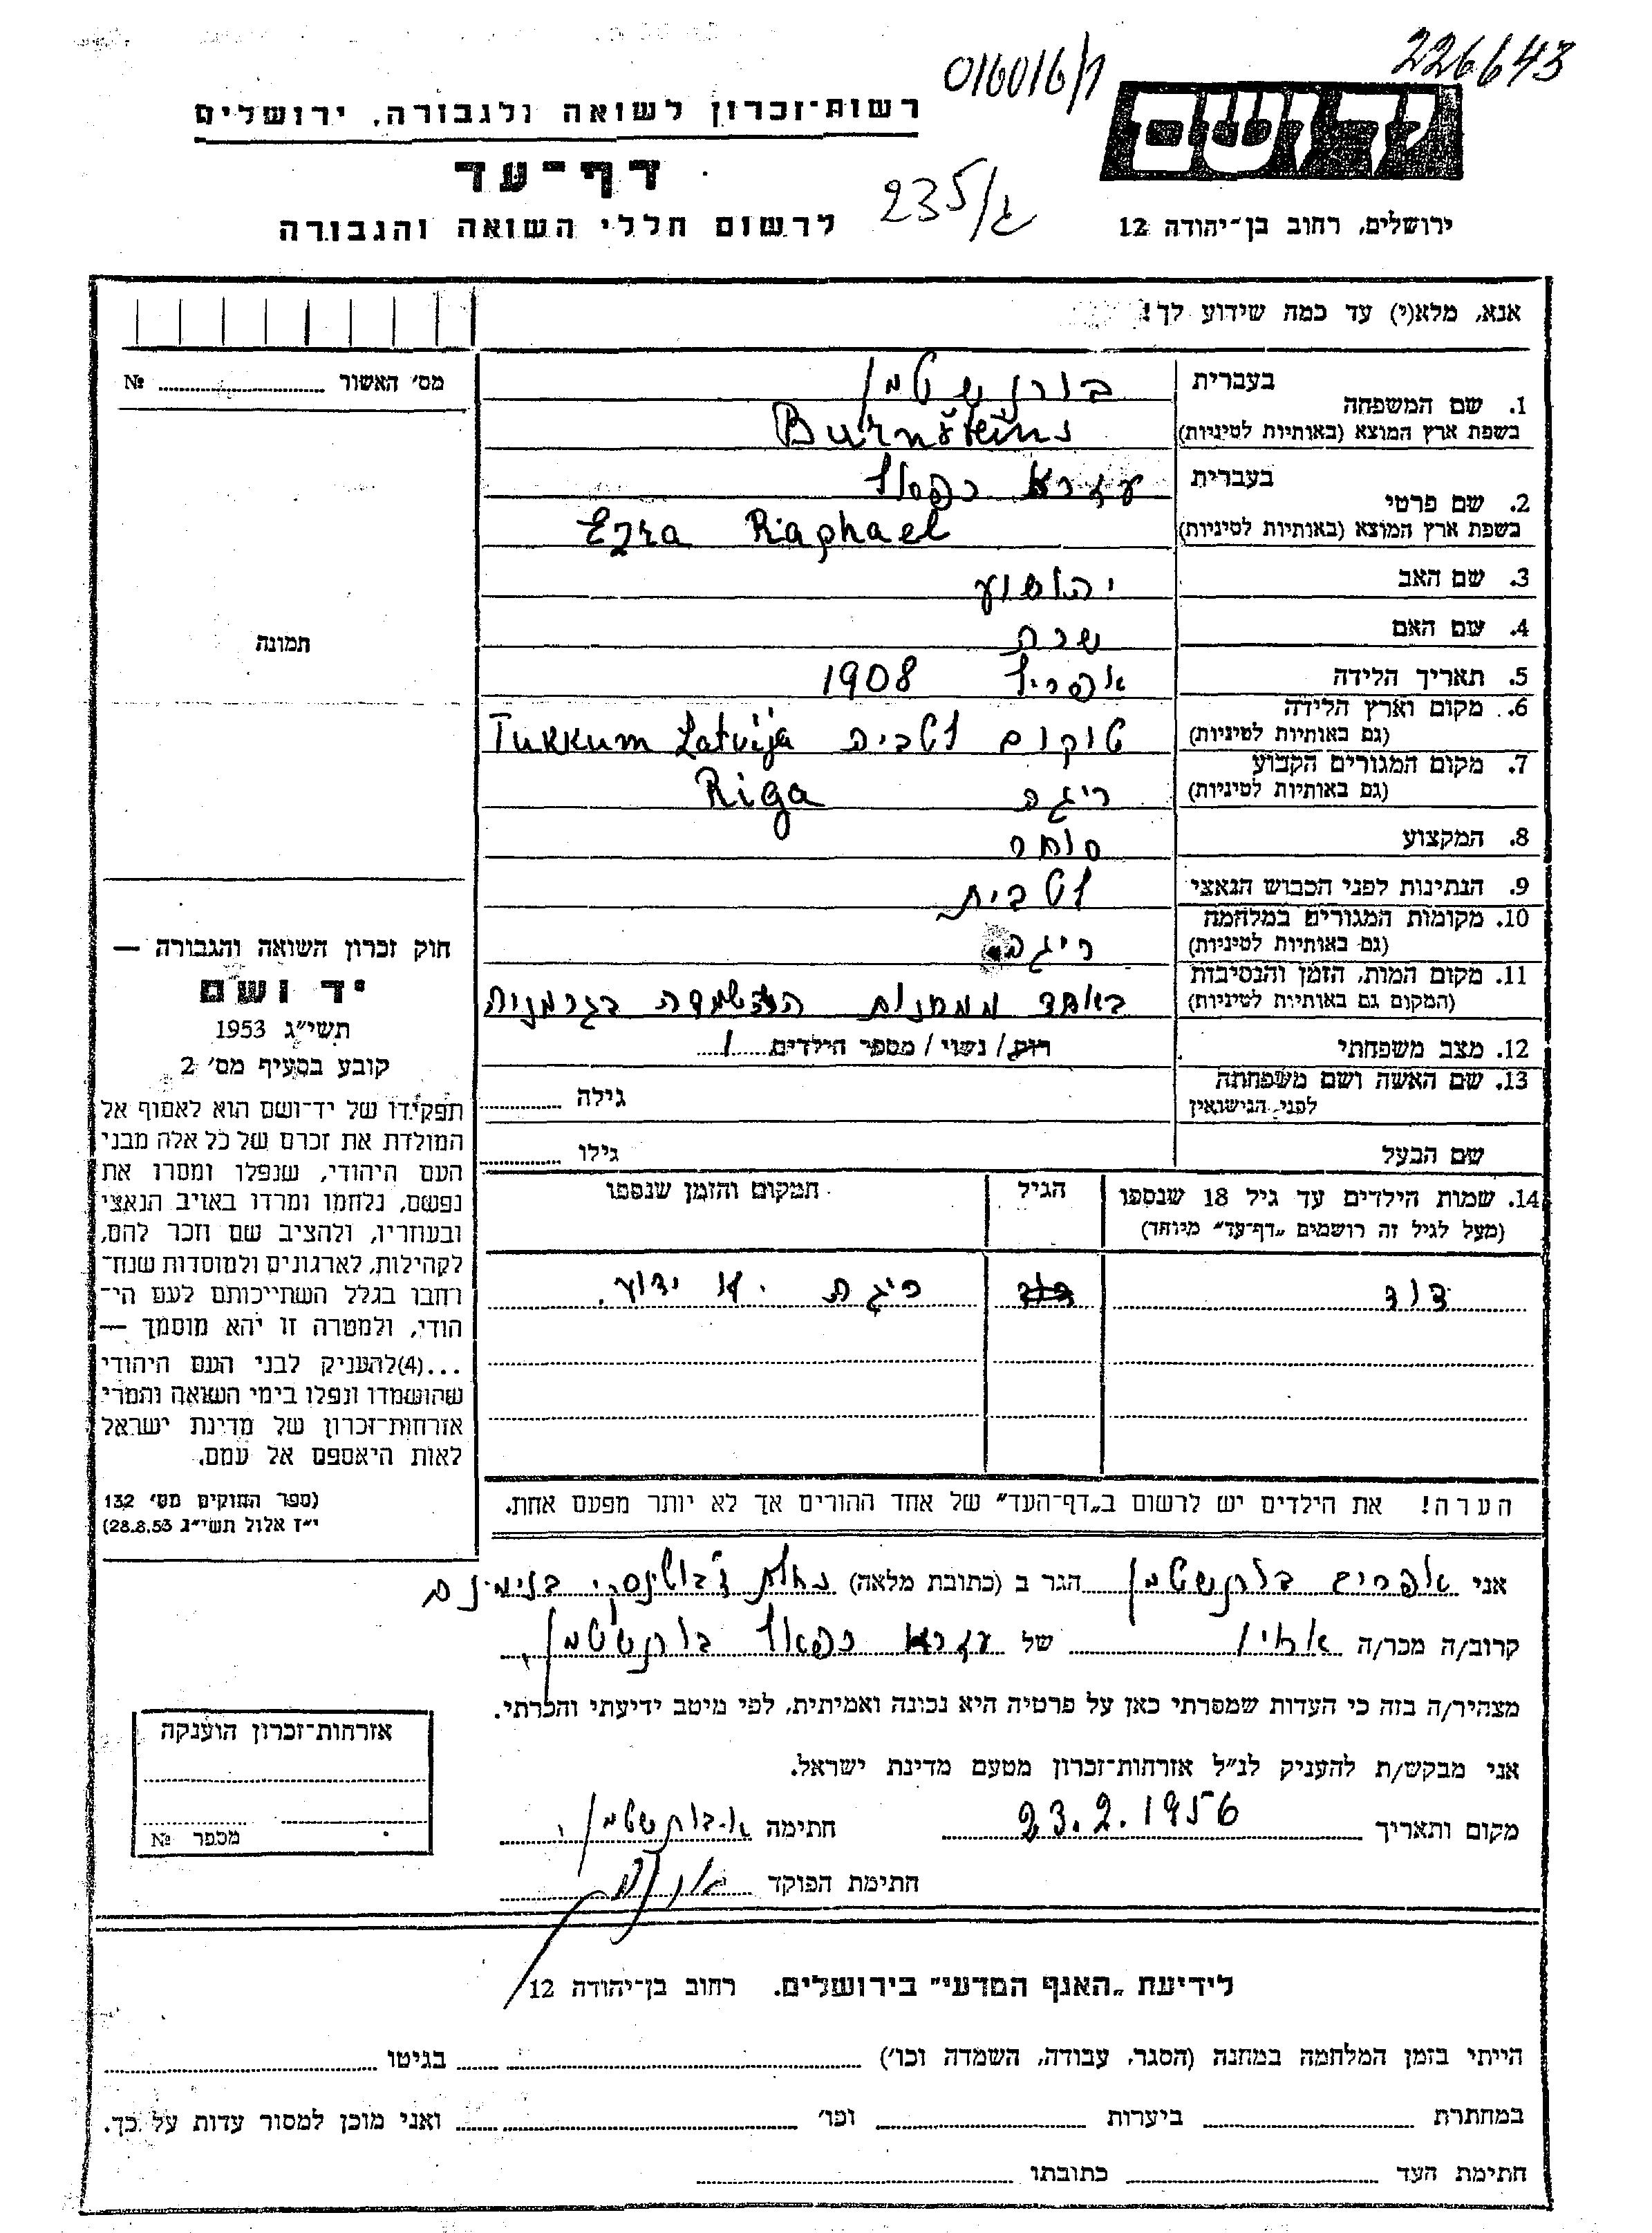 226643
016016/ק
רשות־זכרון לשואה ולגבורה, ירושלים
דף־עד
235/ג
לרשום חללי השואה והגבורה
ירושלים, רחוב בן־יהודה 12
אנא, מלא(י) עד כמה שידוע לך!
מס׳ האשור № ..........
בעברית בורנשטין
1. שם המשפחה
בשפת ארץ המוצא (באותיות לטיניות) Burnšteins
בעברית עזרא רפאל
2. שם פרטי
בשפת ארץ המוצא (באותיות לטיניות) Ezra Raphael
3. שם האב יהושוע
4. שם האם שרה
5. תאריך הלידה אפריל 1908
6. מקום וארץ הלידה
(גם באותיות לטיניות) טוקום לטביה Tukkum Latvija
7. מקום המגורים הקבוע
(גם באותיות לטיניות) ריגה Riga
8. המקצוע סוחר
9. הנתינות לפני הכבוש הנאצי לטבית
10. מקומות המגורים במלחמה
(גם באותיות לטיניות) ריגה
11. מקום המות, הזמן והנסיבות
(המקום גם באותיות לטיניות) באחד ממחנות ההשמדה בגרמניה
12. מצב משפחתי רווק / נשוי / מספר הילדים 1
13. שם האשה ושם משפחתה
לפני הנישואין גילה ..........
שם הבעל גילו ..........
14. שמות הילדים עד גיל 18 שנספו הגיל המקום והזמן שנספו
(מעל לגיל זה רושמים „דף־עד” מיוחד)
דוד ריגה לא ידוע.
הערה! את הילדים יש לרשום ב„דף־העד” של אחד ההורים אך לא יותר מפעם אחת.
תמונה
חוק זכרון השואה והגבורה —
יד ושם
תשי״ג 1953
קובע בסעיף מס׳ 2
תפקידו של יד־ושם הוא לאסוף אל
המולדת את זכרם של כל אלה מבני
העם היהודי, שנפלו ומסרו את
נפשם, נלחמו ומרדו באויב הנאצי
ובעוזריו, ולהציב שם וזכר להם,
לקהילות, לארגונים ולמוסדות שנח־
רחבו בגלל השתייכותם לעם הי־
הודי, ולמטרה זו יהא מוסמך —
...(4)להעניק לבני העם היהודי
שהושמדו ונפלו בימי השואה והמרי
אזרחות־זכרון של מדינת ישראל
לאות היאספם אל עמם.
(ספר החוקים מס׳ 132
י״ז אלול תשי״ג 28.8.53)
אני אפרים בורנשטין הגר ב (כתובת מלאה) נחלת ז׳בוטינסקי בנימינה
קרוב/ה מכר/ה אחיו של עזרא רפאל בורנשטין.
מצהיר/ה בזה כי העדות שמסרתי כאן על פרטיה היא נכונה ואמיתית, לפי מיטב ידיעתי והכרתי.
אני מבקש/ת להעניק לנ״ל אזרחות־זכרון מטעם מדינת ישראל.
מקום ותאריך 23.2.1956 חתימה א. בורנשטין.
חתימת הפוקד
אזרחות־זכרון הוענקה
מספר №
לידיעת „האגף המדעי” בירושלים. רחוב בן־יהודה 12
הייתי בזמן המלחמה במחנה (הסגר, עבודה, השמדה וכו׳) .......... בגיטו ..........
במחתרת .......... ביערות .......... וכו׳ .......... ואני מוכן למסור עדות על כך.
חתימת העד .......... כתובתו ..........